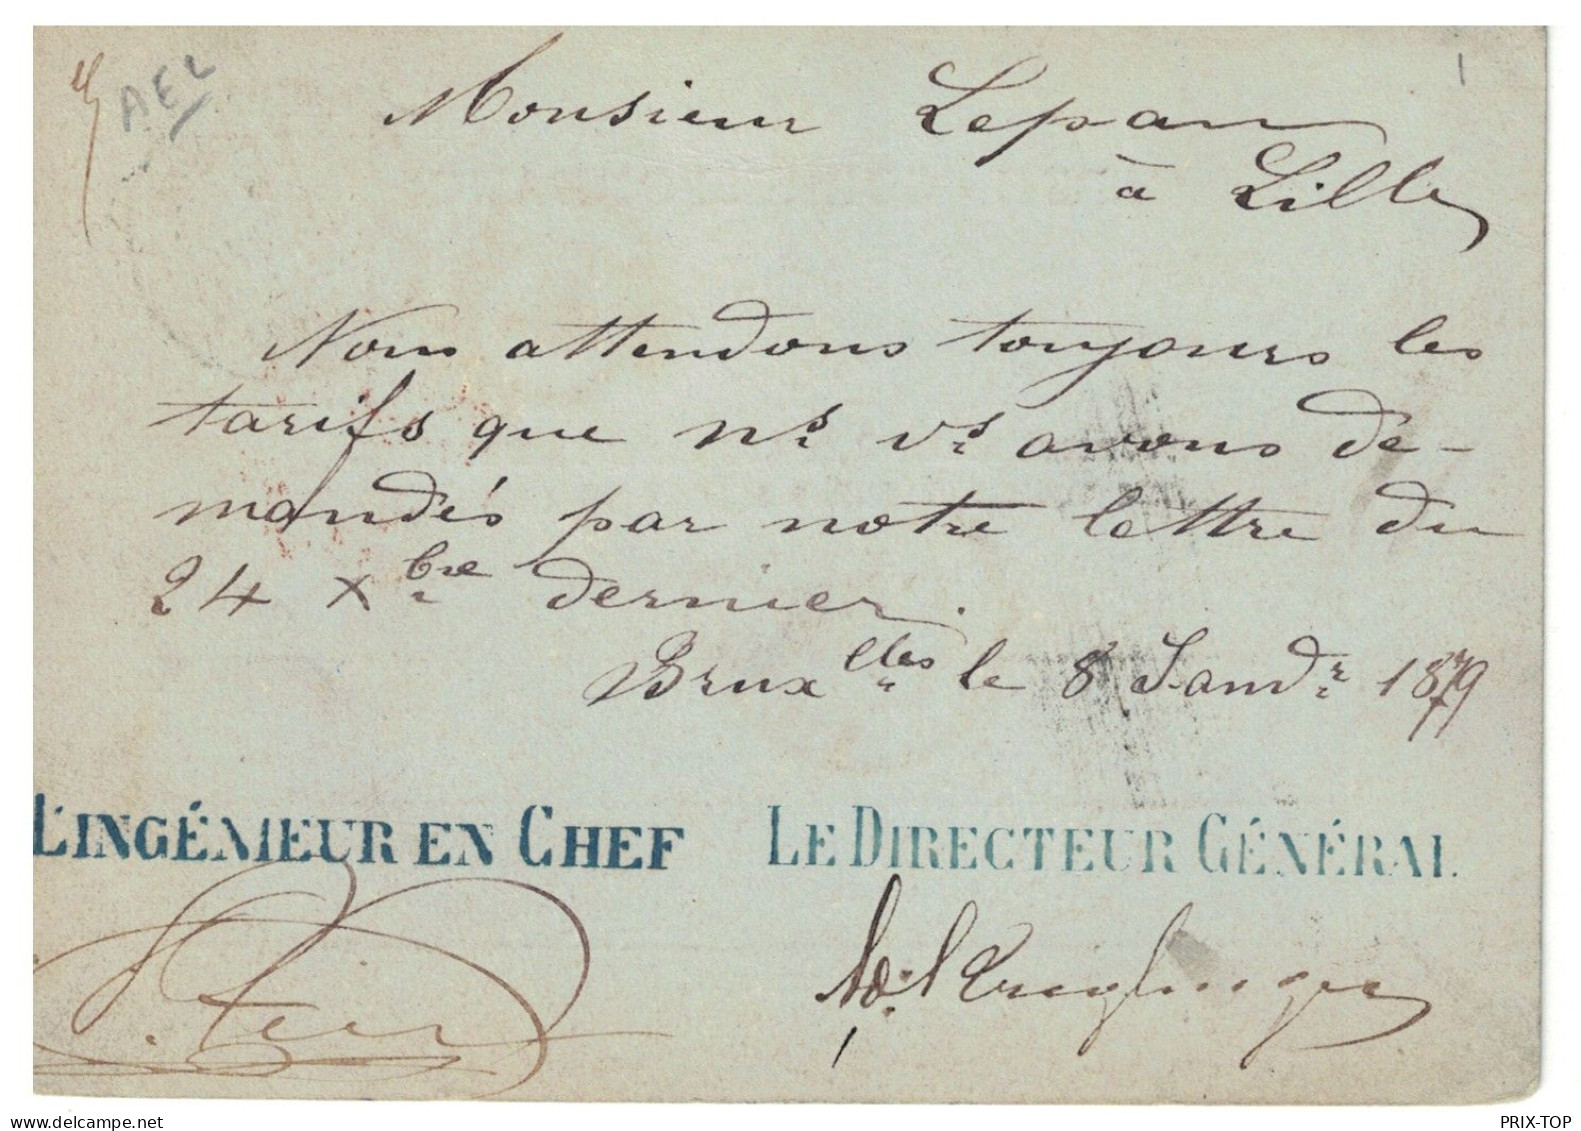 AEL
Monsieur Lepan
à Lille
Nous attendons toujours les
tarifs que ns. vs. avons de-
mandés par notre lettre du
24 Xbre dernier.
Bruxelles le 8 Janvr. 1879
L'INGÉNIEUR EN CHEF LE DIRECTEUR GÉNÉRAL
delcampe.net
PRIX-TOP